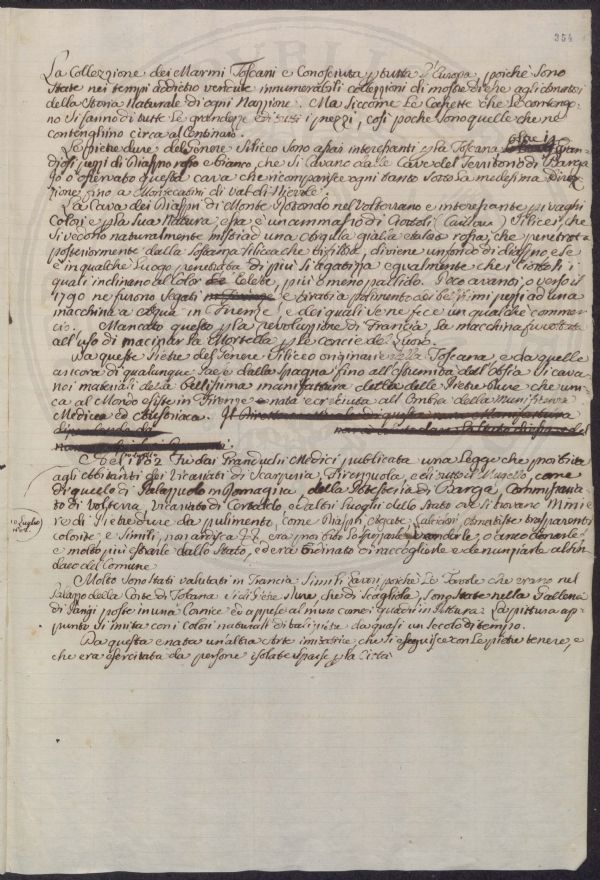 354
La Collezzione dei Marmi Toscani e Conosciuta p tutta l'Europa, poichè sono
state nei tempi addietro vendute innumerabili collezioni di mostre di che agli amatori
della Storia Naturale di ogni Nazzione. Ma siccome le Cassette che le contengo-
no si fanno di tutte le grandezze e di tutti i prezzi, così poche sono quelle che ne
contenghino circa al Centinaio.
Le pietre dure del Genere Siliceo sono assai interessanti p la Toscana oltre i Gran-
diosi pezzi di Diaspro rosso e bianco, che si Cavano dalle Cave del Territorio di Barga
Io ò osservato questa cava che ricomparisce ogni tanto sotto la medesima Direz-
zione fino a Montecatini di Val di Nievole.
La Cava dei Diaspri di Monte Rotondo nel Volterrano e interessante p i vaghi
Colori e p la sua Natura; essa è un ammasso di Ciottoli (Cailloux) Silicei, che
si vedono naturalmente impastati ad una Argilla gialla e talora rossa, che penetrata
posteriormente dalla sostanza silicea che bifilisa, diviene un fondo di diaspro, e se
è in qualche luogo penetrata di più si agatizza egualmente che i Ciottoli, i
quali inclinano al color Celeste, più o meno pallido. Poco avanti, o verso il
1790 ne furono segati e tirati a pulimento dei bellissimi pezzi ad una
macchina a acqua in Firenze, e dei quali ve ne fece un qualche commer-
cio. Mancato questo p la revoluzione di Francia, la macchina fu voltata
all'uso di macinar la Mortella p le concie del Cuoio.
Da queste Pietre del Genere Siliceo originarie della Toscana, e da quelle
ancora di qualunque Paese dalla Spagna fino all'estremità dell'Asia si cava-
no i materiali della bellissima manifattura detta delle Pietre Dure che uni-
ca al Mondo esiste in Firenze e nata e cresciuta all'Ombra della Munificenza
Medicea ed Austriaca.
Nel 1602 Fu dai Granduchi Medici publicata una Legge che proibiva
agli abbitanti dei Vicariati di Scarperia, Firenzuola, e di tutto il Mugello, come
di quello di Palazzuolo in Romagna, della Potesteria di Barga, Commissaria-
to di Volterra, Vicariato di Certaldo, e altri Luoghi dello Stato ove si trovano Minie-
re di Pietre dure da pulimento, come Diaspri, Agate, Calcedoni, Amatiste trasparenti
colorite, e Simili, non ardisca &c. era proibito lo scavarle, venderle, o anco donarle
e molto più estrarle dallo Stato, ed era ordinato di raccoglierle e denunziarle al Sin-
daco del Comune
Molto sono stati valutati in Francia simili lavori poiche le Tavole che erano nel
Palazzo della Corte di Toscana sì di Pietre dure, che di Scagliola, sono state nella Galleria
di Parigi poste in una Cornice ed appese al muro come i quadri in Pittura. La pittura ap-
punto si imita con i colori naturali di tali pietre da quasi un Secolo di tempo.
Da questa e nata un'altra Arte imitatrice che si eseguisce con le pietre tenere, e
che era esercitata da persone isolate sparse p la Città